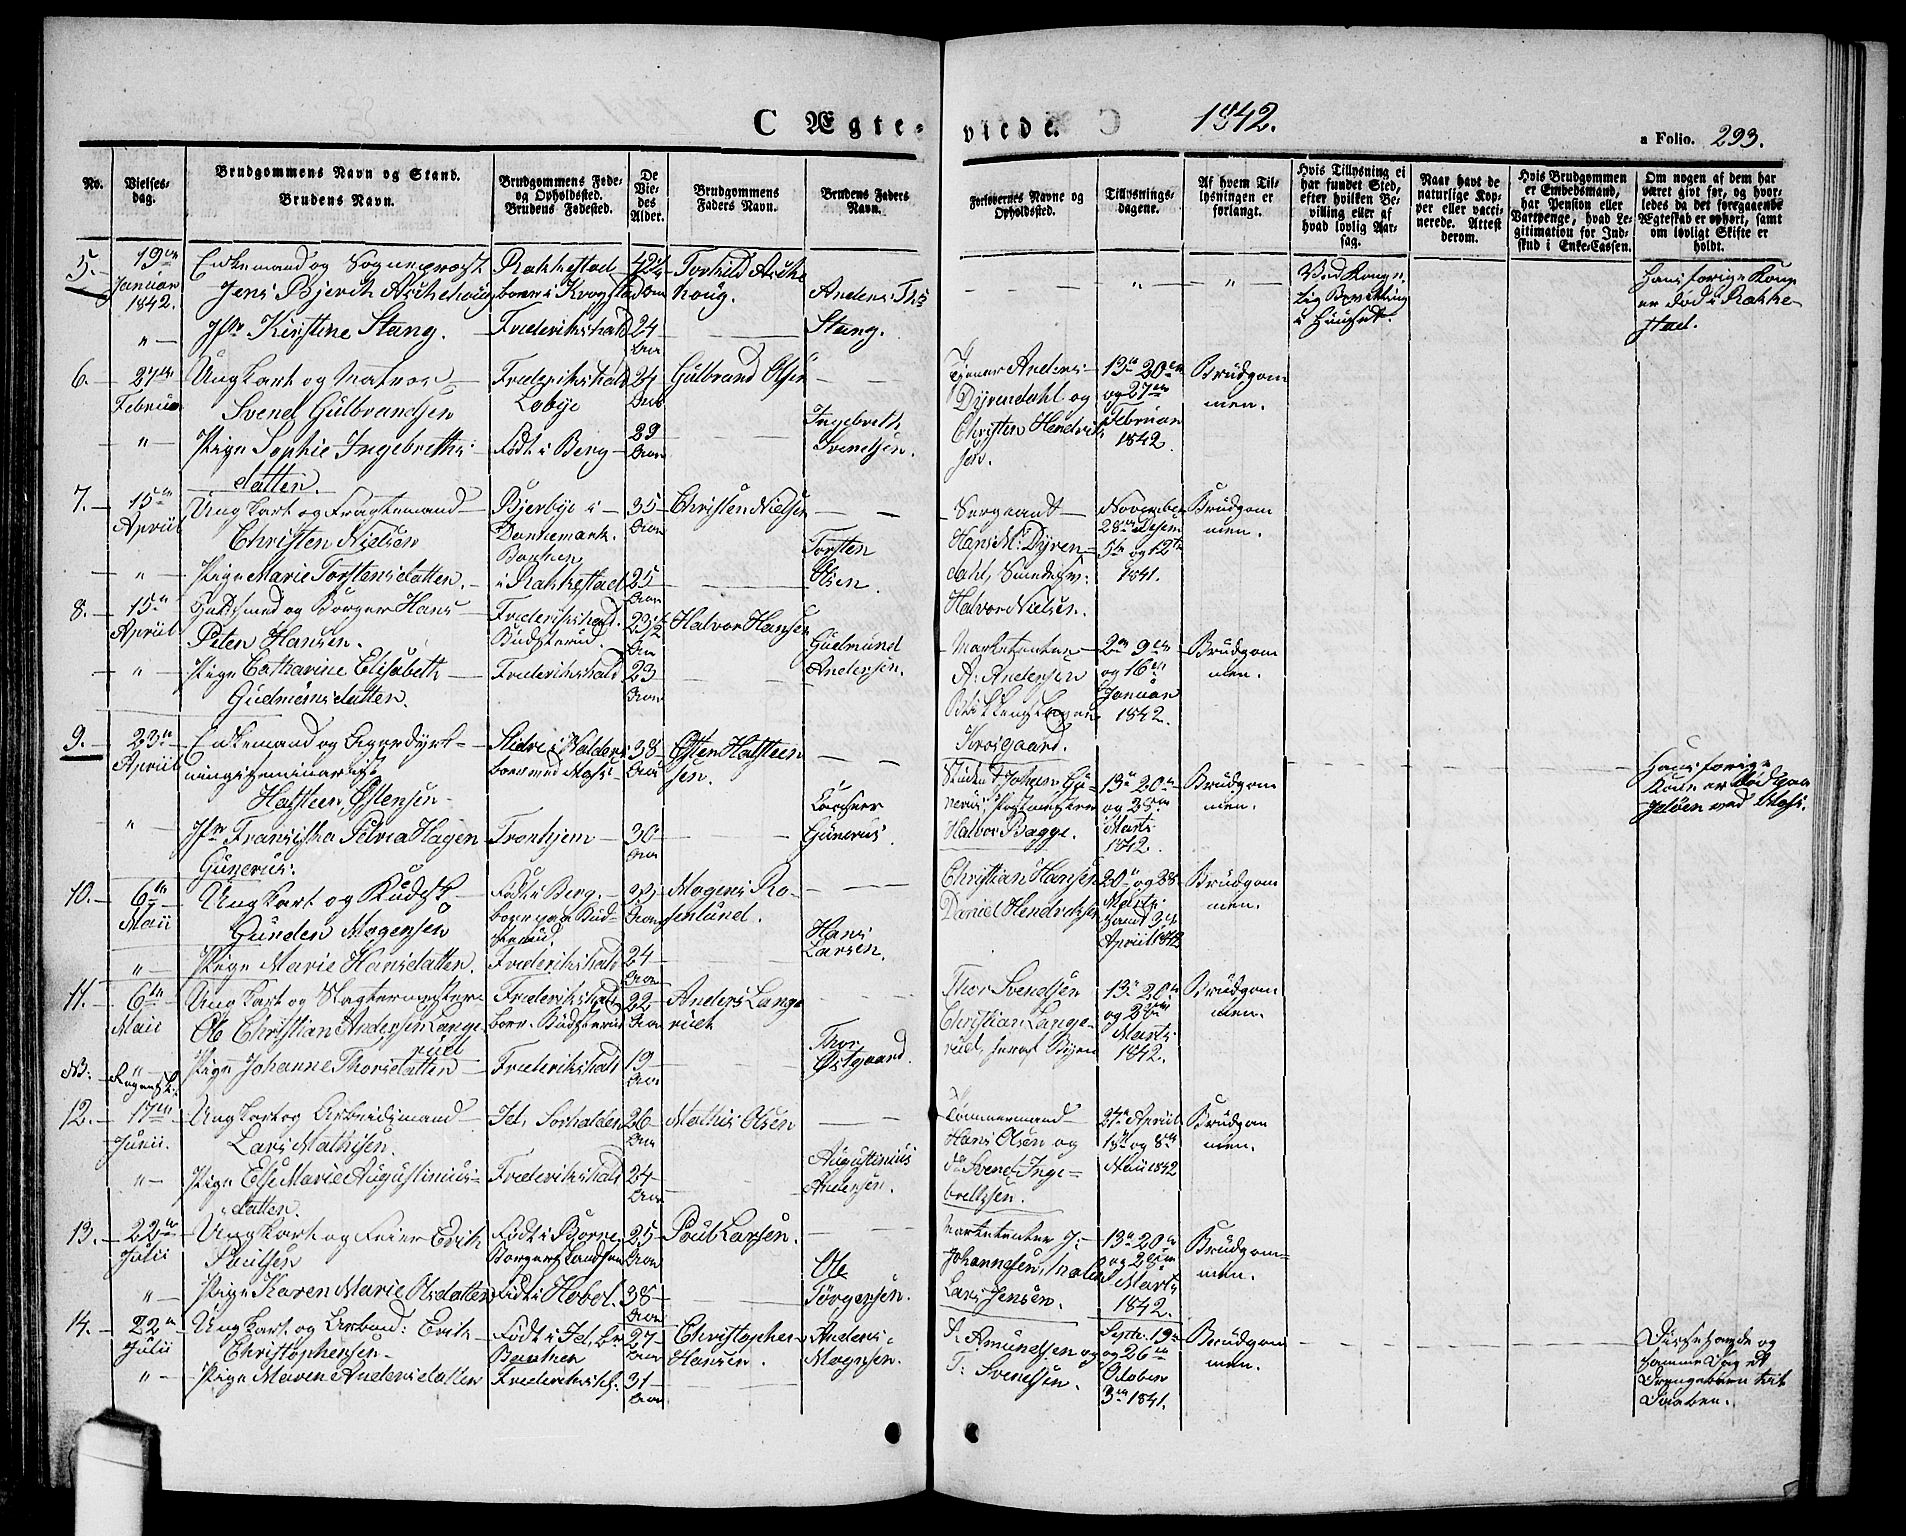 C Ægte-
viede.
1842.
a Folio. 293.
No.
Vielses-
dag.
Brudgommens Navn og Stand.
Brudens Navn.
Brudgommens Føde-
og Opholdssted.
Brudens Fødested.
De
Vie-
des
Alder.
Brudgommens
Faders Navn.
Brudens Faders
Navn.
Forlovernes Navne og
Opholdssted.
Tillysnings-
dagene.
Af hvem Til-
lysningen er
forlangt.
Hvis Tillysning ei
har fundet Sted,
efter hvilken Be-
villing eller af
hvad lovlig Aar-
sag.
Naar havt de
naturlige Kop-
per eller vacci-
nerede. Attest
derom.
Hvis Brudgommen
er Embedsmand,
har Pension eller
Vartpenge, hvad Le-
gitimation for Ind-
skud i Enke-Cassen.
Om nogen af dem har
været givt før, og hvor-
ledes da det foregaaende
Ægteskab er ophørt, samt
om lovligt Skifte er
holdt.
5.
19de
Januar
1842.
Enkemand og Sognepræst
Jens Bjerch Aschehoug
Rakkestad
boer i Krogstad
42½
Aar
Torkild Asche
houg.
Ved Konge-
lig Bevilling
i Huuset.
Hans forige Kone
er død i Rakke-
stad.
"
Jfr Kirstine Stang.
Frederikshald
24
Aar
Anders Ths
Stang.
6.
27de
Februar
Ungkarl og Matros
Svend Gulbrandsen
Frederikshald
24
Aar
Gulbrand Olsen
Anders
Dyrendahl og
Christen Hendrik-
sen.
13de 20de
og 27de
Februar
1842.
Brudgom
men.
"
Pige Sophie Ingebreths-
datten.
Født i Berg
29
Aar
Ingebreth
Svendsen.
7.
15de
Apriil
Ungkarl og Fragtemand
Christen Nielsen
Bjerbye i
Dannemark.
35
Aar
Christen Nielsen
Sergeant
Hans M: Dyren-
dahl,
Halvor Nielsen.
November
28de Desem
5te og 12te
1841.
Brudgom
men.
"
Pige Marie Torstensdatten.
i Rakkestad
25
Aar
Torsten
Olsen.
8.
15de
Apriil
Guldsmed og Borger Hans
Peter Hansen.
Frederikshald.
Budsterud.
23½
Aar
Halvor Hansen
Marketenter
A: Andersen
Krosgaard.
2den 9de
og 16de
Januar
1842.
Brudgom
men.
"
Pige Catharine Elisabeth
Gudmunsdatten.
Frederikshald.
23
Aar
Gudmund
Andersen.
9.
23de
Apriil
Enkemand og Agerdyrk-
ningsseminarist
Halsteen Østensen
Slidre i Valders
boer ved Moss
38
Aar
Østen Halsteen
sen.
Student Johan Gu-
nerus, Postmester
Halvor Bagge.
13de 20de
og 28de
Marts
1842.
Brudgom
men.
Hans forige
Kone er død paa
Jeløen ved Moss.
"
Jfr Fransiska Petrea Hagen
Gunerus.
Tronhjem
30
Aar
Gunerus.
10.
6te
Maii
Ungkarl og Kudsk
Gunder Mogensen
Født i Berg,
boer paa Bud-
sterud.
Aar
Mogens Ro-
senlund.
Christian Hansen
Daniel Hendriksen
20de og 28
Marts
samt 3de
Apriil 1842
Brudgom
men.
"
Pige Marie Hansdatten.
Frederikshald
24
Aar
Hans
Larsen.
11.
6te
Maii
Ungkarl og Slagtermester
Ole Christian Andersen Lange
rud
Frederikshald
boer: Budsterud
22
Aar
Anders Lange
rud
Thor Svendsen
Christian Lange-
rud, her af Byen
13de 20de
og 28de
Marts
1842.
Brudgom
men.
"
Pige Johanne Thorsdatten
Frederikshald
19
Aar
Thor
Østgaard.
12.
17de
Junii.
Ungkarl og Arbeidsmand
Lars Mathisen.
Id, Sorhalden
26
Aar
Mathis Olsen
Tømmermand
Hans Olsen og
do Svend Inge-
bretzsen.
24de Apriil
1ste og 8de
Maii 1842
Brudgom
men.
"
Pige Else Marie Augustinius-
datten.
Frederikshald
24
Aar
Augustinius
Andersen.
13.
22de
Julii
Ungkarl og Feier Erik
Paulsen
Født i Borne
25
Aar
Poul Larsen.
Marketenter J:
Johannesen,
Lars Jensen.
13de 20de
og 28de
Marts
1842.
Brudgom-
men.
"
Pige Karen Marie Olsdatten
Født i Hobøl.
38
Aar
Ole
Jørgensen.
14.
22de
Julii
Ungkarl og Arbmd: Erik
Christophersen
Født i Id,
27
Aar
Christopher
Hansen.
A: Amundsen og
T: Svendsen.
Septr. 19de
og 26de
October
3de 1841.
Brudgom
men.
Disse havde og
samme Dag et
Drengebarn til
Daaben.
"
Pige Maren Andersdatten
Frederiksh.
31
Aar
Anders
Mognsen.